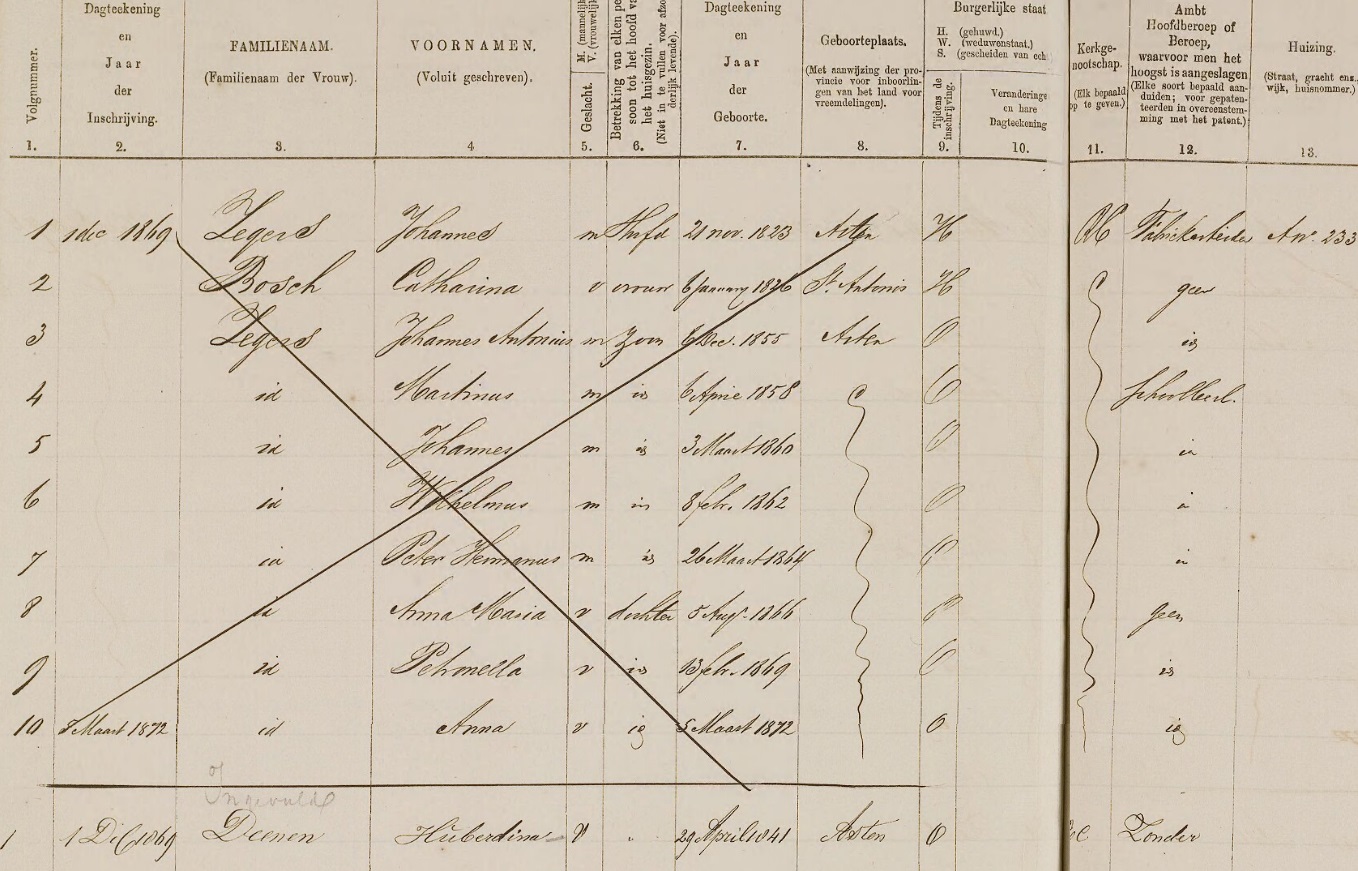 Volgnummer.
Dagteekening
en
Jaar
der
Inschrijving.
FAMILIENAAM.
(Familienaam der Vrouw).
VOORNAMEN.
(Voluit geschreven).
Geslacht.
M. (mannelijk
V. (vrouwelijk
Betrekking van elken pe
soon tot het hoofd va
het huisgezin.
(Niet in te vullen voor afzo
derlijk levende).
Dagteekening
en
Jaar
der
Geboorte.
Geboorteplaats.
(Met aanwijzing der pro-
vincie voor inboorlin-
gen van het land voor
vreemdelingen).
Burgerlijke staat
H. (gehuwd.)
W. (weduwenstaat.)
S. (gescheiden van ech
Tijdens de
inschrijving.
Veranderinge
en hare
Dagteekening
Kerkge-
nootschap.
(Elk bepaald
op te geven.)
Ambt
Hoofdberoep of
Beroep,
waarvoor men het
hoogst is aangeslagen
(Elke soort bepaald aan-
duiden; voor gepaten-
teerden in overeenstem-
ming met het patent.)
Huizing.
(Straat, gracht enz.
wijk, huisnummer.)
1. 2. 3. 4 5. 6. 7. 8. 9. 10. 11. 12. 13.
1 1 dec 1869 Zegers Johannes m Hofd 21 nov. 1823 Asten H RC Fabriekarbeider A nr. 233
2 Bosch Catharina v vrouw 6 january 1826 St. Antonis H geen
3 Zegers Johannes Antonius m zoon 6 Dec. 1855 Asten O id
4 id Martinus m id 6 April 1858 O
5 id Johannes m id 3 Maart 1860 O id
6 id Wilhelmus m id 8 febr. 1862 O id
7 id Peter Hermanus m id 26 Maart 1864 O id
8 id Anna Maria v dochter 5 Aug. 1866 O geen
9 id Petronella v id 13 febr. 1869 O id
10 5 Maart 1872 id Anna v id 5 Maart 1872 O id
1 1 Dec 1869 Deenen Huberdina V " 29 April 1841 Asten O Zonder